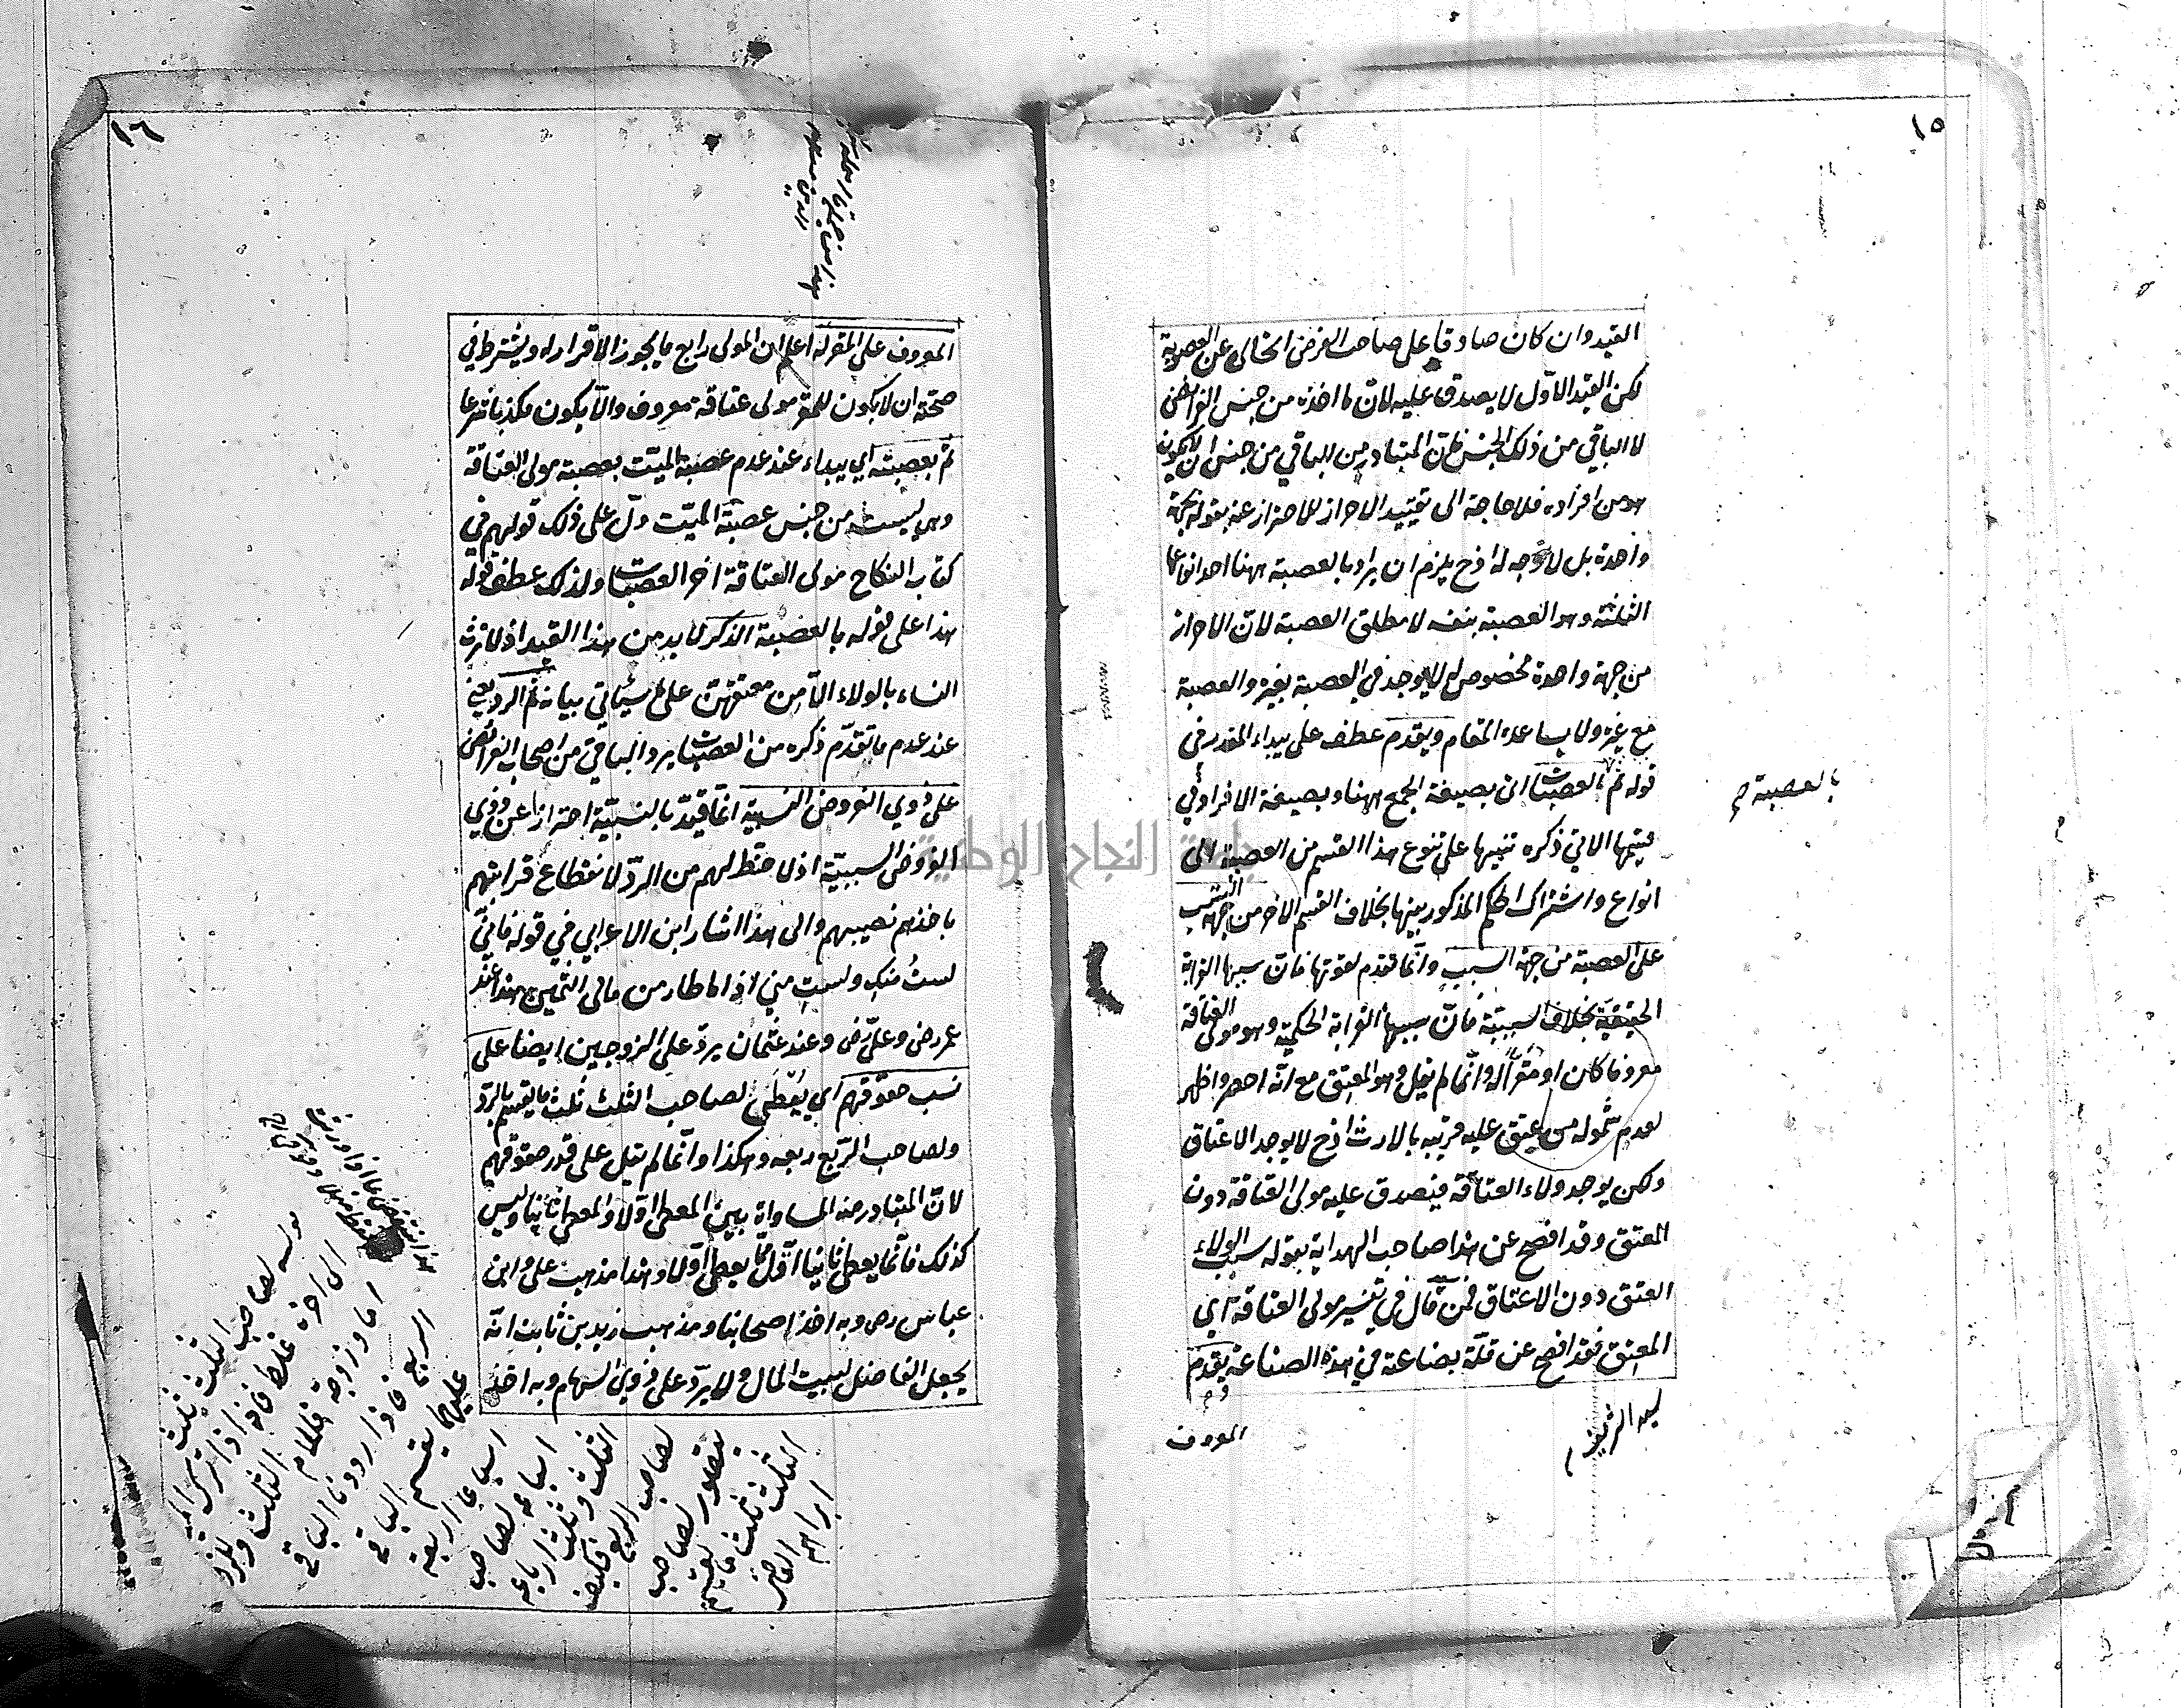 ١٥
القيد وان كان صادقا على صاحب الفرض الخالى عن العصوبة
لكن القيد الاول لا يصدق عليه لان ما اخذه من جنس الفرائض
لا الباقي من ذلك الجنس فان المتبادر من الباقي من جنس ان لا يكون
هو من افراده فلا حاجة الى تقييد الاحراز للاحتراز عنه بقوله بجهة
واحدة بل لا وجه له اذ ح يلزم ان يراد بالعصبة ههنا احد انواعها
الثلثة وهو العصبة بنفسه لا مطلق العصبة لان الاحراز
من جهة واحدة مخصوص له لا يوجد في العصبة بغيره والعصبة
مع غيره ولا يساعده المقام ويقدم عطف على يبداء المقدر في
قوله ثم بالعصبات اتى بصيغة الجمع ههنا وبصيغة الافراد في
قسيمها الاتي ذكره تنبيها على تنوع هذا القسم من العصبة الى
انواع واشتراك الحكم المذكور بينها بخلاف القسم الاخر من جهة النسب
على العصبة من جهة السبب وانما تقدم لقوتها فان سببها القرابة
الحقيقية بخلاف السببية فان سببها القرابة الحكمية وهو مولى العتاقة
معروفا كان او مقرا له وانما لم يقل وهو المعتق مع انه احصر واظهر
لعدم شموله من يعتق عليه قريبه بالارث اذ ح لا يوجد الاعتاق
ولكن يوجد ولاء العتاقة فيصدق عليه مولى العتاقة دون
المعتق وقد افصح عن هذا صاحب الهداية بقوله سبب الولاء
العتق دون الاعتاق فمن قال في تفسير مولى العتاقة اي
المعتق فقد افصح عن قلة بضاعته في هذه الصناعة يقدم
المعروف
بالعصبة
١٦
المعروف على المقر له اعلم ان المولى رابع ما يجوز الاقرار له ويشترط في
صحته ان لا يكون للمقر مولى عتاقة معروف والا يكون مكذبا شرعا
ثم بعصبته اي يبداء عند عدم عصبة الميت بعصبة مولى العتاقة
وهي ليست من جنس عصبة الميت دل على ذلك قولهم في
كتاب النكاح مولى العتاقة اخر العصبات ولذلك عطف قوله
هذا على قوله بالعصبة الذكر لا بد من هذا القيد اذ لا ترث
النساء بالولاء الا من معتقهن على ما سيأتي بيانه ثم الرد يعني
عند عدم ما تقدم ذكره من العصبات يرد الباقي من اصحاب الفرائض
على ذوي الفروض النسبية انما قيد بالنسبية احترازا عن ذوي
الفروض السببية اذ لا حظ لهم من الرد لانقطاع قرابتهم
باخذهم نصيبهم والى هذا اشار ابن الاعرابي في قوله فاني
لست منك ولست مني اذا ما طار من مالي الثمين هذا عند
عمر رض وعلي رض وعند عثمان يرد على الزوجين ايضا على
نسب حقوقهم اي يعطى لصاحب الثلث ثلث ما يقسم بالرد
ولصاحب الربع ربعه وهكذا وانما لم يقل على قدر حقوقهم
لان المتبادر منه المساواة بين المعطى اولا والمعطى ثانيا وليس
كذلك فانما يعطى ثانيا اقل مما يعطى اولا وهذا مذهب علي وابن
عباس رض وبه اخذ اصحابنا ومذهب زيد بن ثابت انه
يجعل الفاضل لبيت المال ولا يرد على ذوي السهام وبه اخذ
قوله لصاحب الثلث ثلث
الى اخره غلط فانه اذا ترك الميت
اما وزوجة فللام الثلث وللزوجة
الربع فاذا اردنا الباقي
عليهما يقسم الباقي
اسباعا اربعة
اسباعه لصاحب
الثلث وثلثة ارباعه
لصاحب الربع
لصاحب
الثلث ثلث